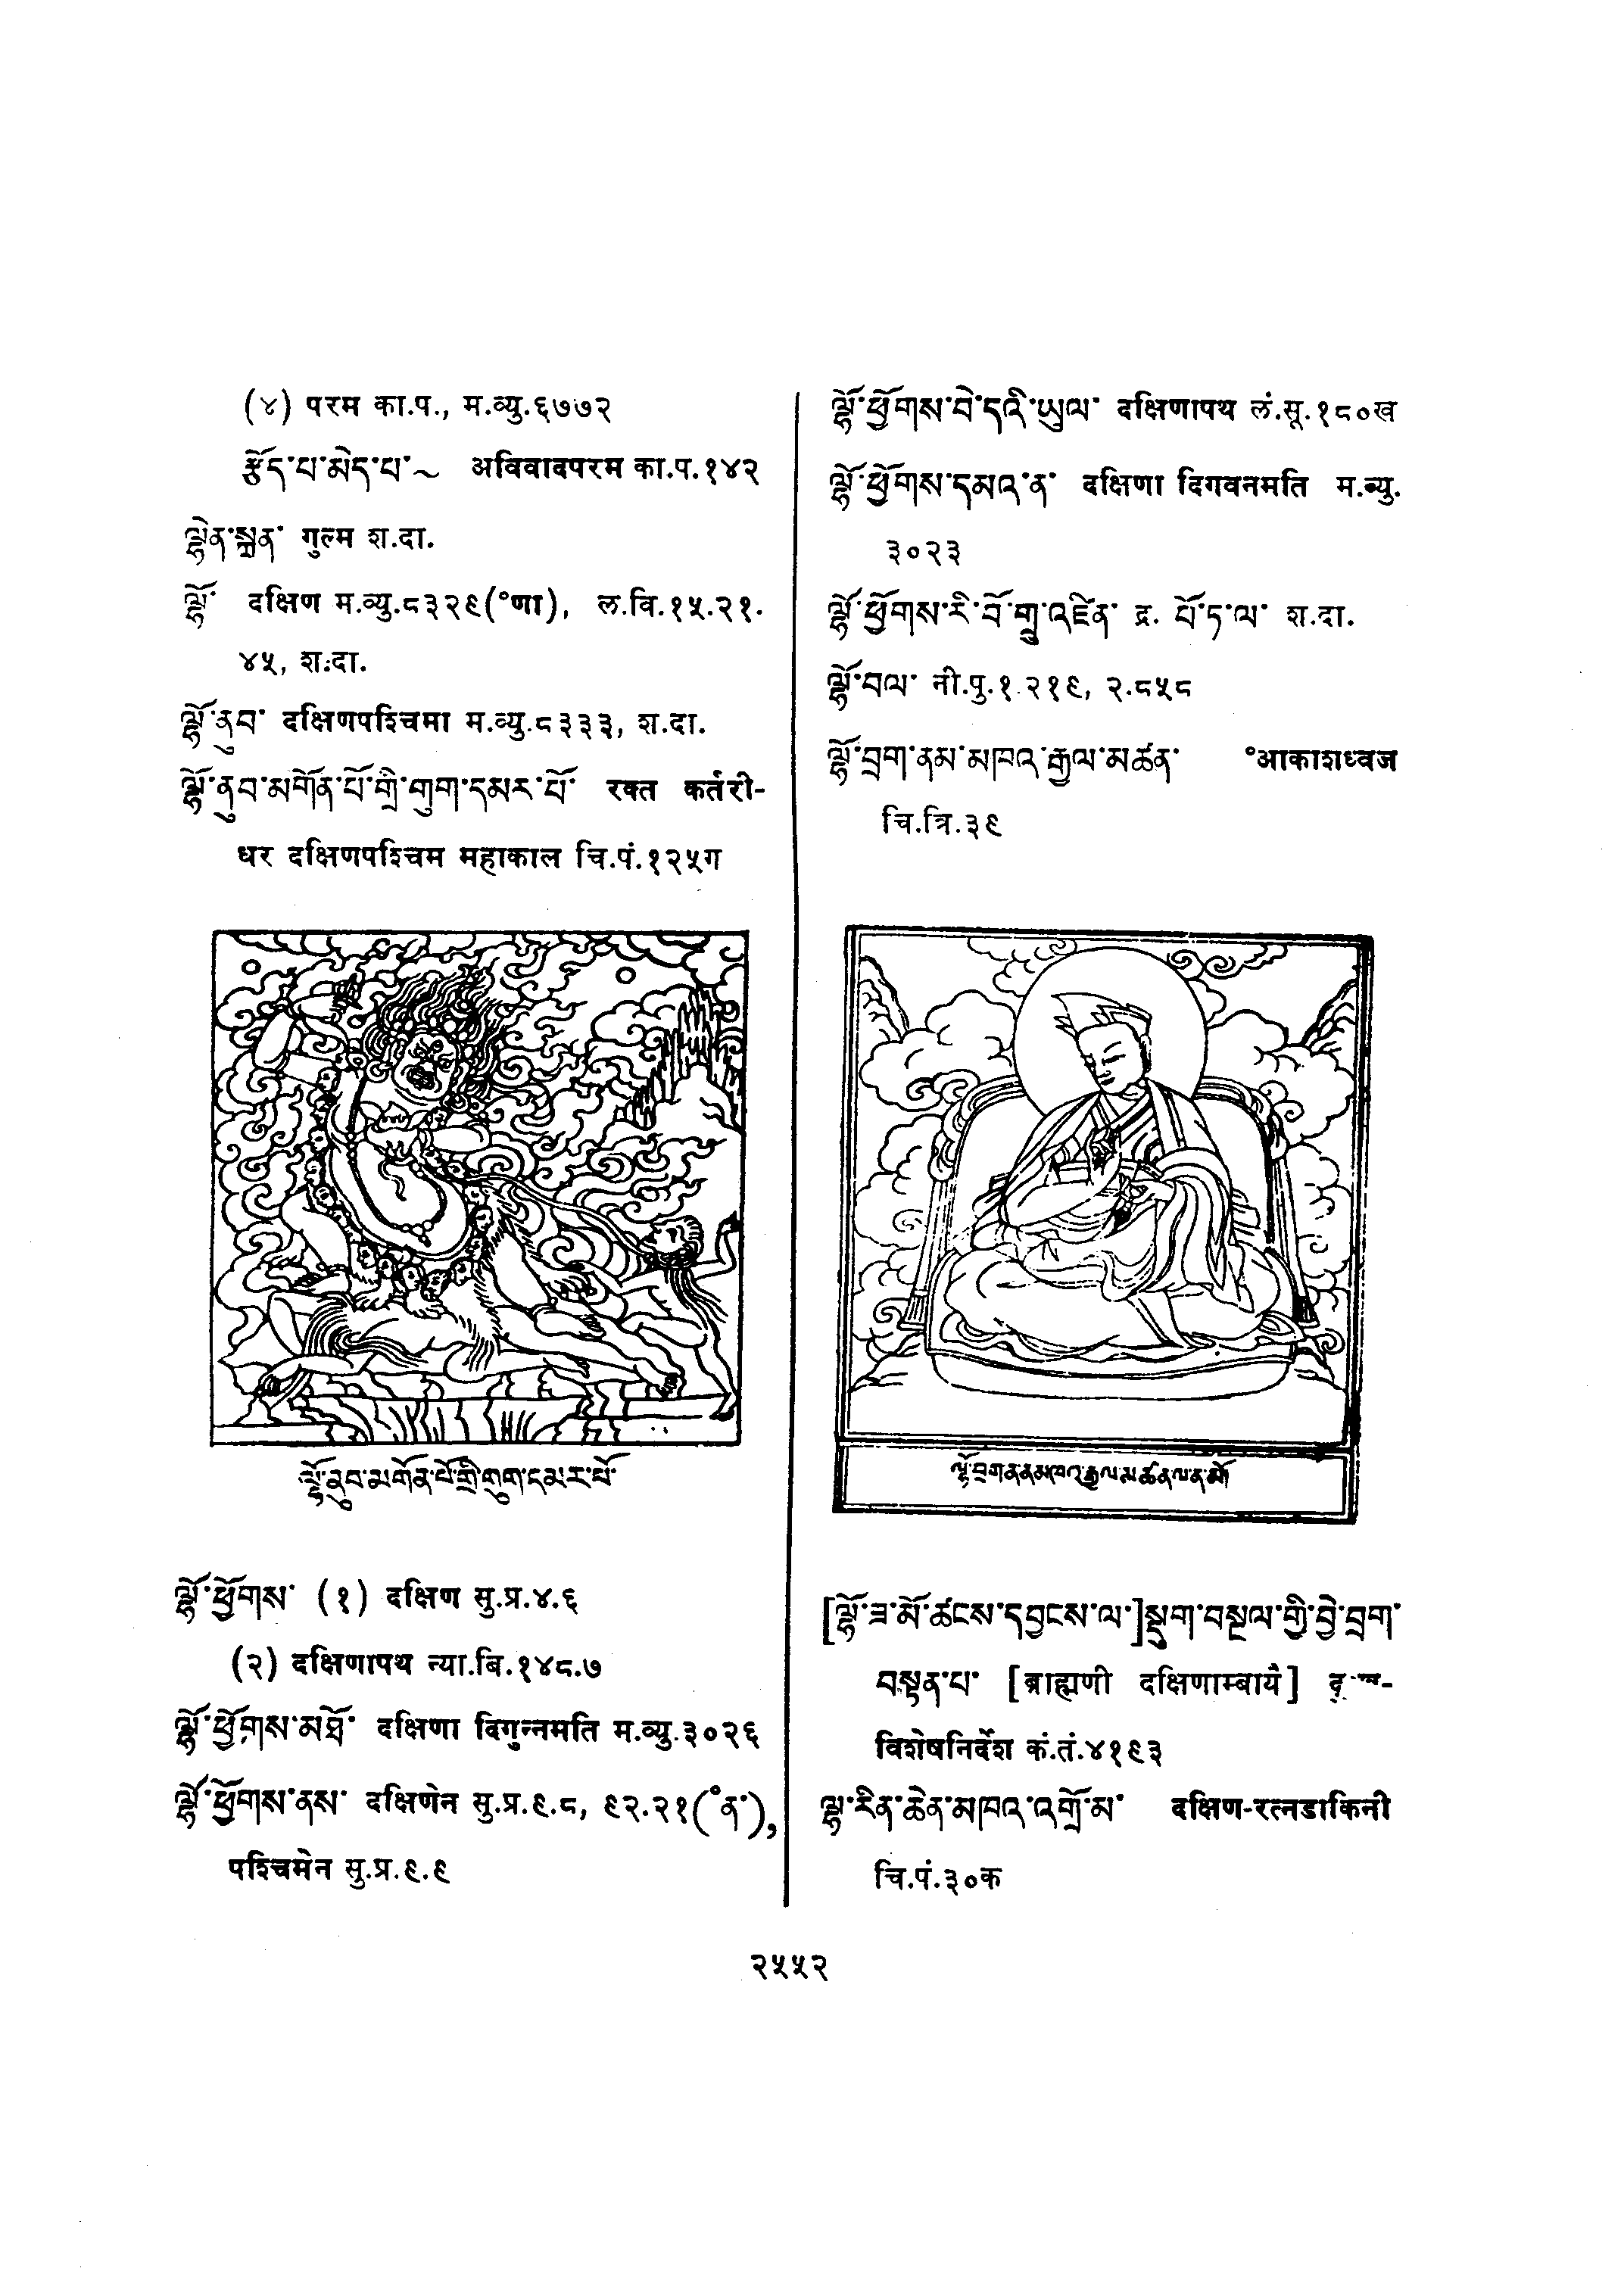 (४) परम का.प., म.व्यु.६७७२
རྩོད་པ་མེད་པ་~ अविवादपरम का.प.१४२
ལྷེན་སྐྲན་ गुल्म श.दा.
ལྷོ་ दक्षिण म.व्यु.८३२९(°णा), ल.वि.१५.२१.
४५, श.दा.
ལྷོ་ནུབ་ दक्षिणपश्चिमा म.व्यु.८३३३, श.दा.
ལྷོ་ནུབ་མགོན་པོ་གྲི་གུག་དམར་པོ་ रक्त कर्तरी-
धर दक्षिणपश्चिम महाकाल चि.पं.१२५ग
ལྷོ་ནུབ་མགོན་པོ་གྲི་གུག་དམར་པོ་
ལྷོ་ཕྱོགས་ (१) दक्षिण सु.प्र.४.६
(२) दक्षिणापथ न्या.बि.१४८.७
ལྷོ་ཕྱོགས་མཐོ་ दक्षिणा दिगुन्नमति म.व्यु.३०२६
ལྷོ་ཕྱོགས་ནས་ दक्षिणेन सु.प्र.९.८, ९२.२१(°ན་),
पश्चिमेन सु.प्र.९.९
ལྷོ་ཕྱོགས་བེ་དའི་ཡུལ་ दक्षिणापथ लं.सू.१८०ख
ལྷོ་ཕྱོགས་དམའ་ན་ दक्षिणा दिगवनमति म.व्यु.
३०२३
ལྷོ་ཕྱོགས་རི་བོ་གྲུ་འཛིན་ द्र. པོ་ཏ་ལ་ श.दा.
ལྷོ་བལ་ नी.पु.१.२१९, २.८५८
ལྷོ་བྲག་ནམ་མཁའ་རྒྱལ་མཚན་ °आकाशध्वज
चि.त्रि.३९
ལྷོ་བྲག་ནནམཁའ་རྒྱལ་མཚན་ལ་ན་མོ
[ལྷོ་ཟ་མོ་ཚངས་དབྱངས་ལ་]སྡུག་བསྔལ་གྱི་བྱེ་བྲག་
བསྟན་པ་ [ब्राह्मणी दक्षिणाम्बायै]
विशेषनिर्देश कं.तं.४१९३
ལྷ་རིན་ཆེན་མཁའ་འགྲོ་མ་ दक्षिण-रत्नडाकिनी
चि.पं.३०क
२५५२